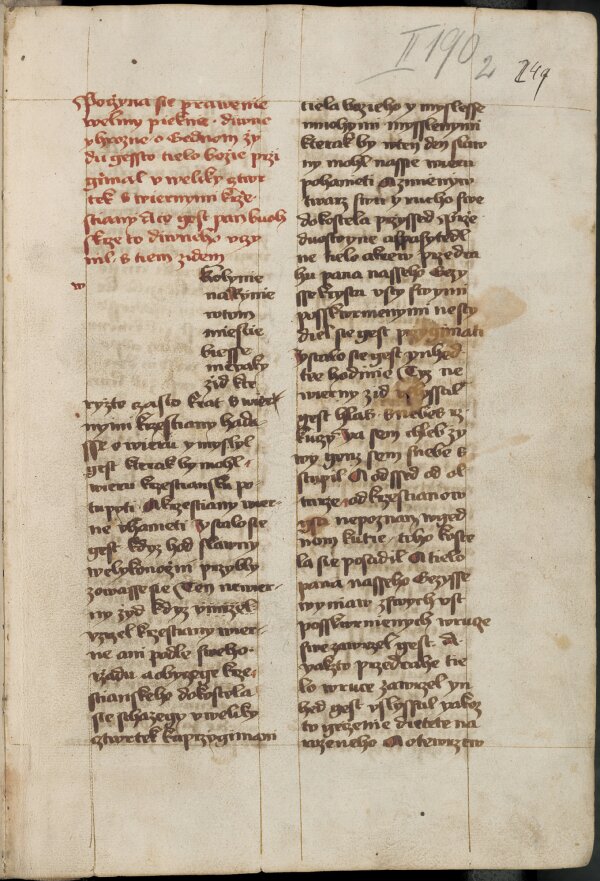 II 190
2
249
Poczyna sie prawenie
welmy piekne · diwne
yhrozne · o Gednom zy
du gessto tielo bozie przi
gimal v weliky cztwr
tek s wiernymi krze
stiany Ale gest pan buoh
skrze to diwneho vczy
nil s tiem zidem
w
kolynie
na Rynie
wtom
miestie
biesse
nieraky
zid kte
ryzto czasto krat s wier
nymi krzestiany hada
sse o wieru y myslyl
gest kterak by mohl
wieru krzestiansku po
tupyti A krzestiany wier
ne vhaneti Y stalo se
gest kdyz hod slawny
welykonoczni przybly
zowasse sie Ten newier
ny zyd kdyz vmrzel
vzrzel krzestiany wier
ne ani podle sweho
rzadu a obyczege krze
stianskeho do kostela
sie schazegy v weliky
cztwrtek k aprzygimani
tiela bozieho y myslesse
mnohymi mysslenymi
kterak by wten den slaw
ny mohl nassie wieru
pohaneti A zmieniw
twarz swu y rucho swe
do kostela przyssed Skrze
duostoyne
ne tielo przedra
heho pana nasseho Gezy
sse krysta vsty swymi
posskwrnenymi nesty
diel sie gest przygimati
Y stalo sie gest ynhed
tee hodinie Tyz ne
wierny zid vslyssal
gest hlas s nebes rz
kuczy Ja sem chleb zy
wy genz sem s nebe s
stupil A odssed od ol
tarze od krzestianow
gsa nepoznan wged
nom kutie toho koste
la sie posadil A tielo
pana nasseho Gezysse
wynaw zswych vst
posskwrnienych wruce
swe zawrzel gest. A
yakzto przedrahe tie
lo wruce zawrzel yn
hed gest vslyssal yakoz
to gezenie dietete na
rozeneho A otewrzew